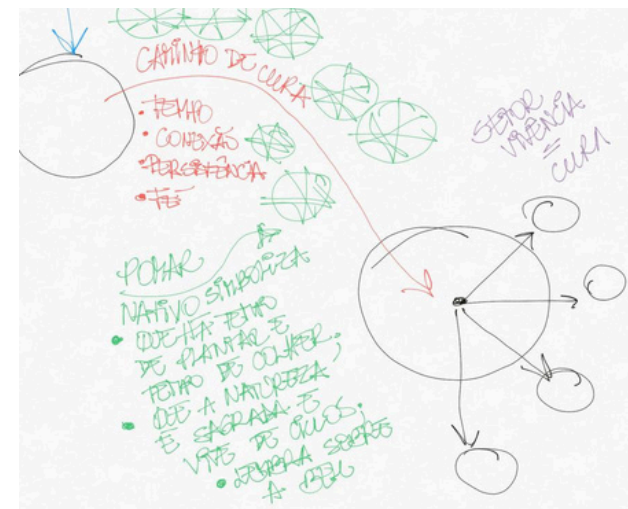 CAMINHO DE CURA
• TEMPO
• CONEXÃO
• PERSISTÊNCIA
• FÉ
SETOR
VIVÊNCIA
=
CURA
POMAR
NATIVO SIMBOLIZA
• QUE HÁ TEMPO
DE PLANTAR E
TEMPO DE COLHER;
• QUE A NATUREZA
É SAGRADA E
VIVE DE CICLOS;
• LEMBRA SEMPRE
A